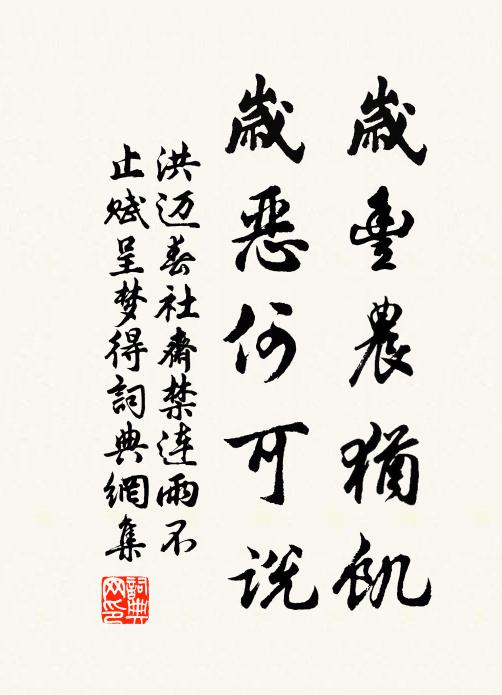 歲豊農猶飢
歲惡何可説
洪迈春社齋禁連雨不
止赋呈梦得詞典網集